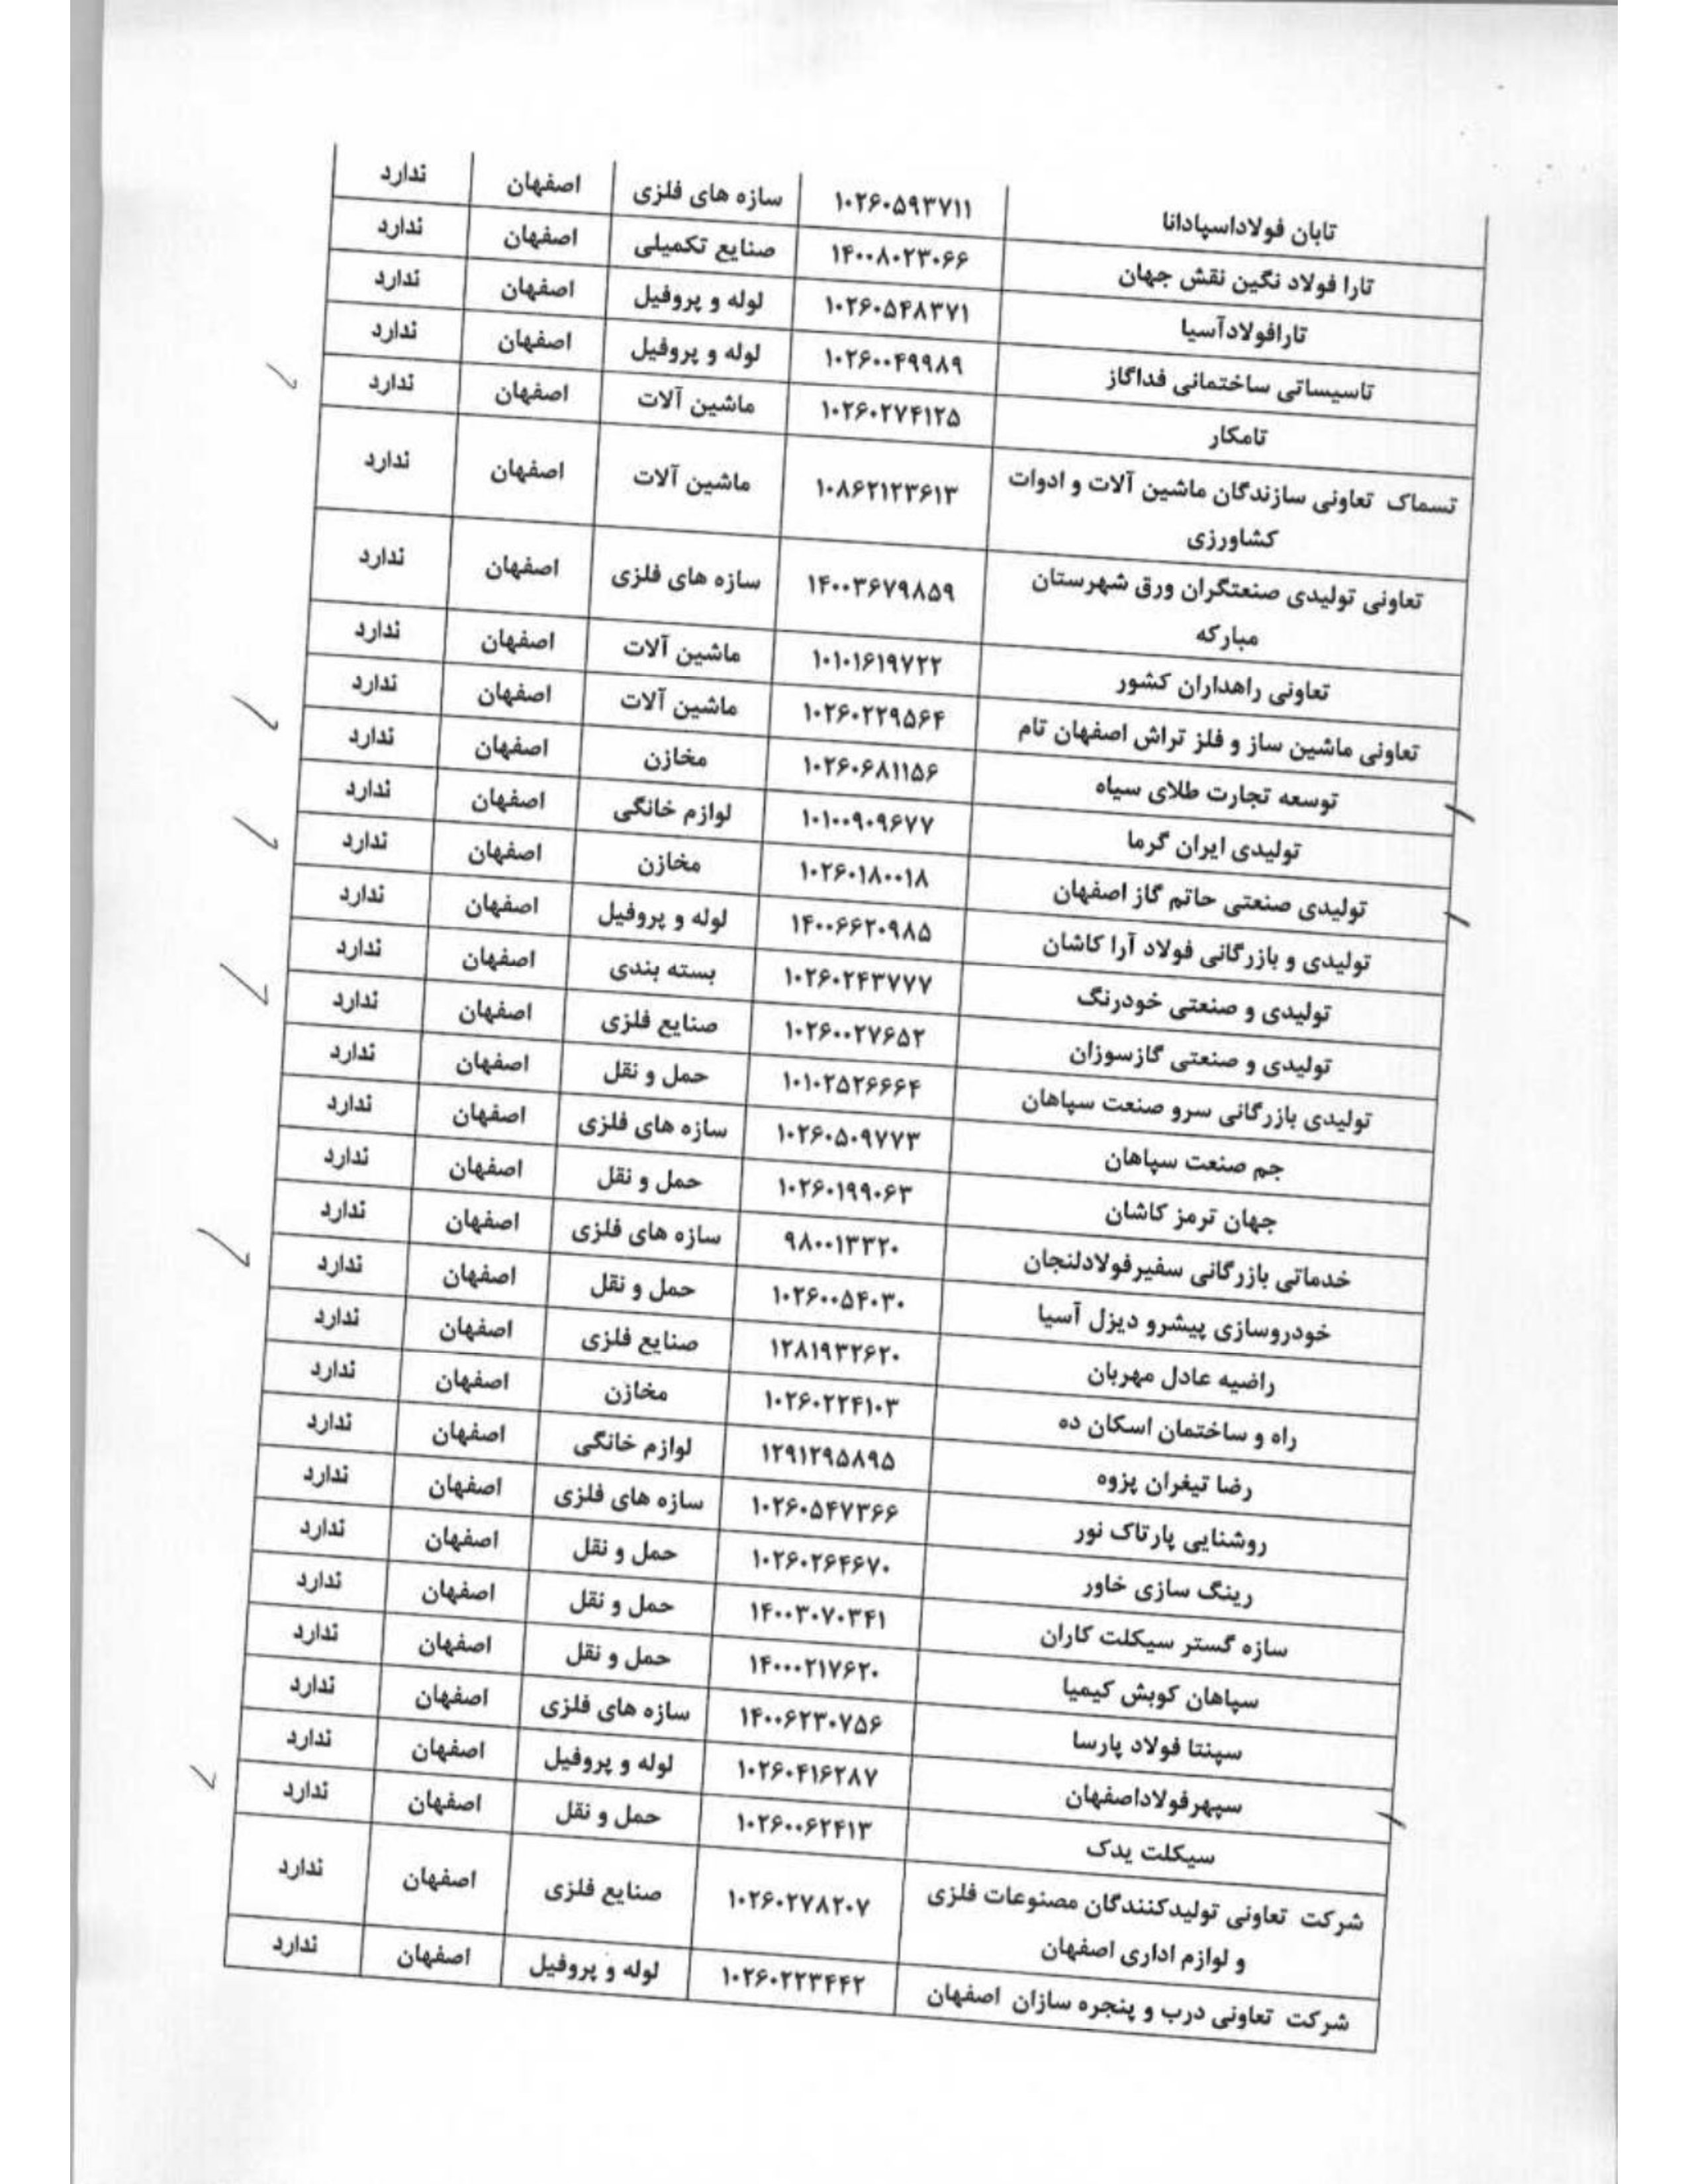 تابان فولاداسپادانا ۱۰۲۶۰۵۹۳۷۱۱ سازه های فلزی اصفهان ندارد
تارا فولاد نگین نقش جهان ۱۴۰۰۸۰۲۳۰۶۶ صنایع تکمیلی اصفهان ندارد
تارافولادآسیا ۱۰۲۶۰۵۴۸۳۷۱ لوله و پروفیل اصفهان ندارد
تاسیساتی ساختمانی فداگاز ۱۰۲۶۰۰۴۹۹۸۹ لوله و پروفیل اصفهان ندارد
تامکار ۱۰۲۶۰۲۷۴۱۲۵ ماشین آلات اصفهان ندارد
تسماک تعاونی سازندگان ماشین آلات و ادوات
کشاورزی ۱۰۸۶۲۱۲۳۶۱۳ ماشین آلات اصفهان ندارد
تعاونی تولیدی صنعتگران ورق شهرستان
مبارکه ۱۴۰۰۳۶۷۹۸۵۹ سازه های فلزی اصفهان ندارد
تعاونی راهداران کشور ۱۰۱۰۱۶۱۹۷۲۲ ماشین آلات اصفهان ندارد
تعاونی ماشین ساز و فلز تراش اصفهان تام ۱۰۲۶۰۲۲۹۵۶۴ ماشین آلات اصفهان ندارد
توسعه تجارت طلای سیاه ۱۰۲۶۰۶۸۱۱۵۶ مخازن اصفهان ندارد
تولیدی ایران گرما ۱۰۱۰۰۹۰۹۶۷۷ لوازم خانگی اصفهان ندارد
تولیدی صنعتی حاتم گاز اصفهان ۱۰۲۶۰۱۸۰۰۱۸ مخازن اصفهان ندارد
تولیدی و بازرگانی فولاد آرا کاشان ۱۴۰۰۶۶۲۰۹۸۵ لوله و پروفیل اصفهان ندارد
تولیدی و صنعتی خودرنگ ۱۰۲۶۰۲۴۳۷۷۷ بسته بندی اصفهان ندارد
تولیدی و صنعتی گازسوزان ۱۰۲۶۰۰۲۷۶۵۲ صنایع فلزی اصفهان ندارد
تولیدی بازرگانی سرو صنعت سپاهان ۱۰۱۰۲۵۲۶۶۶۴ حمل و نقل اصفهان ندارد
جم صنعت سپاهان ۱۰۲۶۰۵۰۹۷۷۳ سازه های فلزی اصفهان ندارد
جهان ترمز کاشان ۱۰۲۶۰۱۹۹۰۶۳ حمل و نقل اصفهان ندارد
خدماتی بازرگانی سفیرفولادلنجان ۹۸۰۰۱۳۳۲۰ سازه های فلزی اصفهان ندارد
خودروسازی پیشرو دیزل آسیا ۱۰۲۶۰۰۵۴۰۳۰ حمل و نقل اصفهان ندارد
راضیه عادل مهربان ۱۲۸۱۹۳۲۶۲۰ صنایع فلزی اصفهان ندارد
راه و ساختمان اسکان ده ۱۰۲۶۰۲۲۴۱۰۳ مخازن اصفهان ندارد
رضا تیغران پزوه ۱۲۹۱۲۹۵۸۹۵ لوازم خانگی اصفهان ندارد
روشنایی پارتاک نور ۱۰۲۶۰۵۴۷۳۶۶ سازه های فلزی اصفهان ندارد
رینگ سازی خاور ۱۰۲۶۰۲۶۴۶۷۰ حمل و نقل اصفهان ندارد
سازه گستر سیکلت کاران ۱۴۰۰۳۰۷۰۳۴۱ حمل و نقل اصفهان ندارد
سپاهان کوبش کیمیا ۱۴۰۰۰۲۱۷۶۲۰ حمل و نقل اصفهان ندارد
سپنتا فولاد پارسا ۱۴۰۰۶۲۳۰۷۵۶ سازه های فلزی اصفهان ندارد
سپهرفولاداصفهان ۱۰۲۶۰۴۱۶۲۸۷ لوله و پروفیل اصفهان ندارد
سیکلت یدک ۱۰۲۶۰۰۶۲۴۱۳ حمل و نقل اصفهان ندارد
شرکت تعاونی تولیدکنندگان مصنوعات فلزی
و لوازم اداری اصفهان ۱۰۲۶۰۲۷۸۲۰۷ صنایع فلزی اصفهان ندارد
شرکت تعاونی درب و پنجره سازان اصفهان ۱۰۲۶۰۲۲۳۴۴۲ لوله و پروفیل اصفهان ندارد